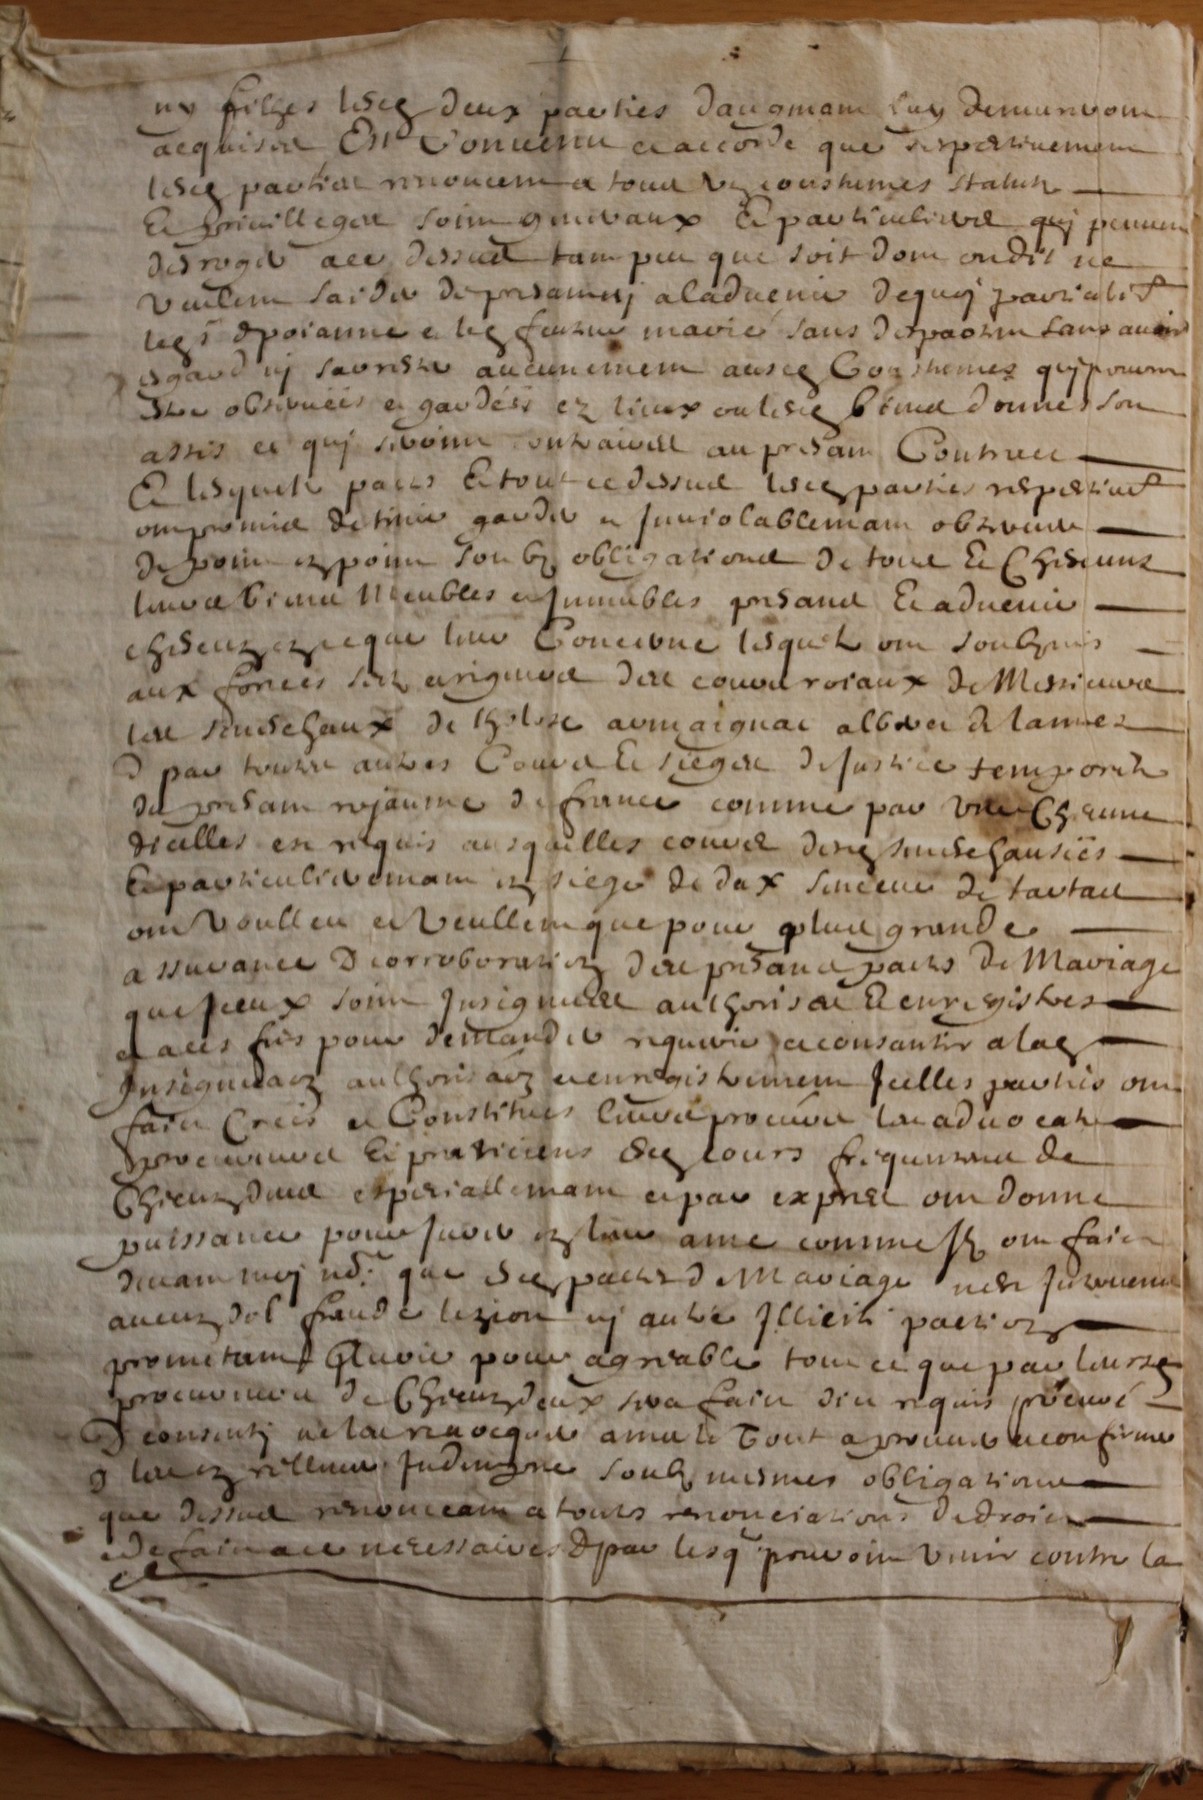 ny filhes lesd deux parties daugmant luy demureront
acquises Est Convenu et accorde que respectivement
lesd parties renoncent a tous us coustumes statutz
Et privilleges soint generaux Et particuliers quj peuvent
desroger a ce dessus tant peu que soit dont ondit ne
veullent saider de presant nj aladvenir dequoj
led espoianne e led futur marié sans avoir
esgard nj sarrester aucunement ausd Coustumes quj pouront
estre observées et gardées ez lieux ou lesd biens donnes son
assis et quj seroint contraires au presant Contract
Et lesquels pactes Et tout ce dessus lesd parties respectivet
ont promis de tenir garder et Inviolablemant observer
de point en point soubz obligations de tous Et Chescuns
leurs biens Meubles et Inmubles presans Et advenir
chescun en ce que leur Concerne lesquels ont soubzmis
aux forces et rigueurs des cours roiaux de Messieurs
les seneschaux de tholose armaignac albret et lannes
Et par toutes autres Cours Et sieges de Justice temporels
du presant rojaume de france comme par une Chescune
dicelles est requis ausquelles cours desd seneschausées
Et particulieremant ez siege de dax senechal de tartas
ont voulleu et veullent que pour plus grande
assurance Et corroboration des presans pactes de Mariage
que Iceux soint Insignues authorises Et enregistres
et a ces fins pour demander requerir et consantir a lad
Insignuation authorisaon et enregistrement Icelles parties ont
fait Crees et Constitues leurs procurs les advocatz
procureurs Et praticiens desd cours frequentans de
Chescun deux especiallemant et par expres ont donne
puissance pour Jurer en leur ame comme Ils ont fait
devant moj nore que esd pactes de Mariage nest Intervenu
aucun dol fraude lezion nj autre Illicite paction
prometant Et avoir pour agreable tout ce que par leursd
procureurs de Chescun deux sera fait dit requis procuré
Et consentj ne les revocquer ains le Tout aprouver et confirmer
Et les en rellever Indempne soubz mesmes obligations
que dessus renonceant a toutes renonciations de droit
et de fait a ce necessaires Et par lesqs pouroint venir contre la